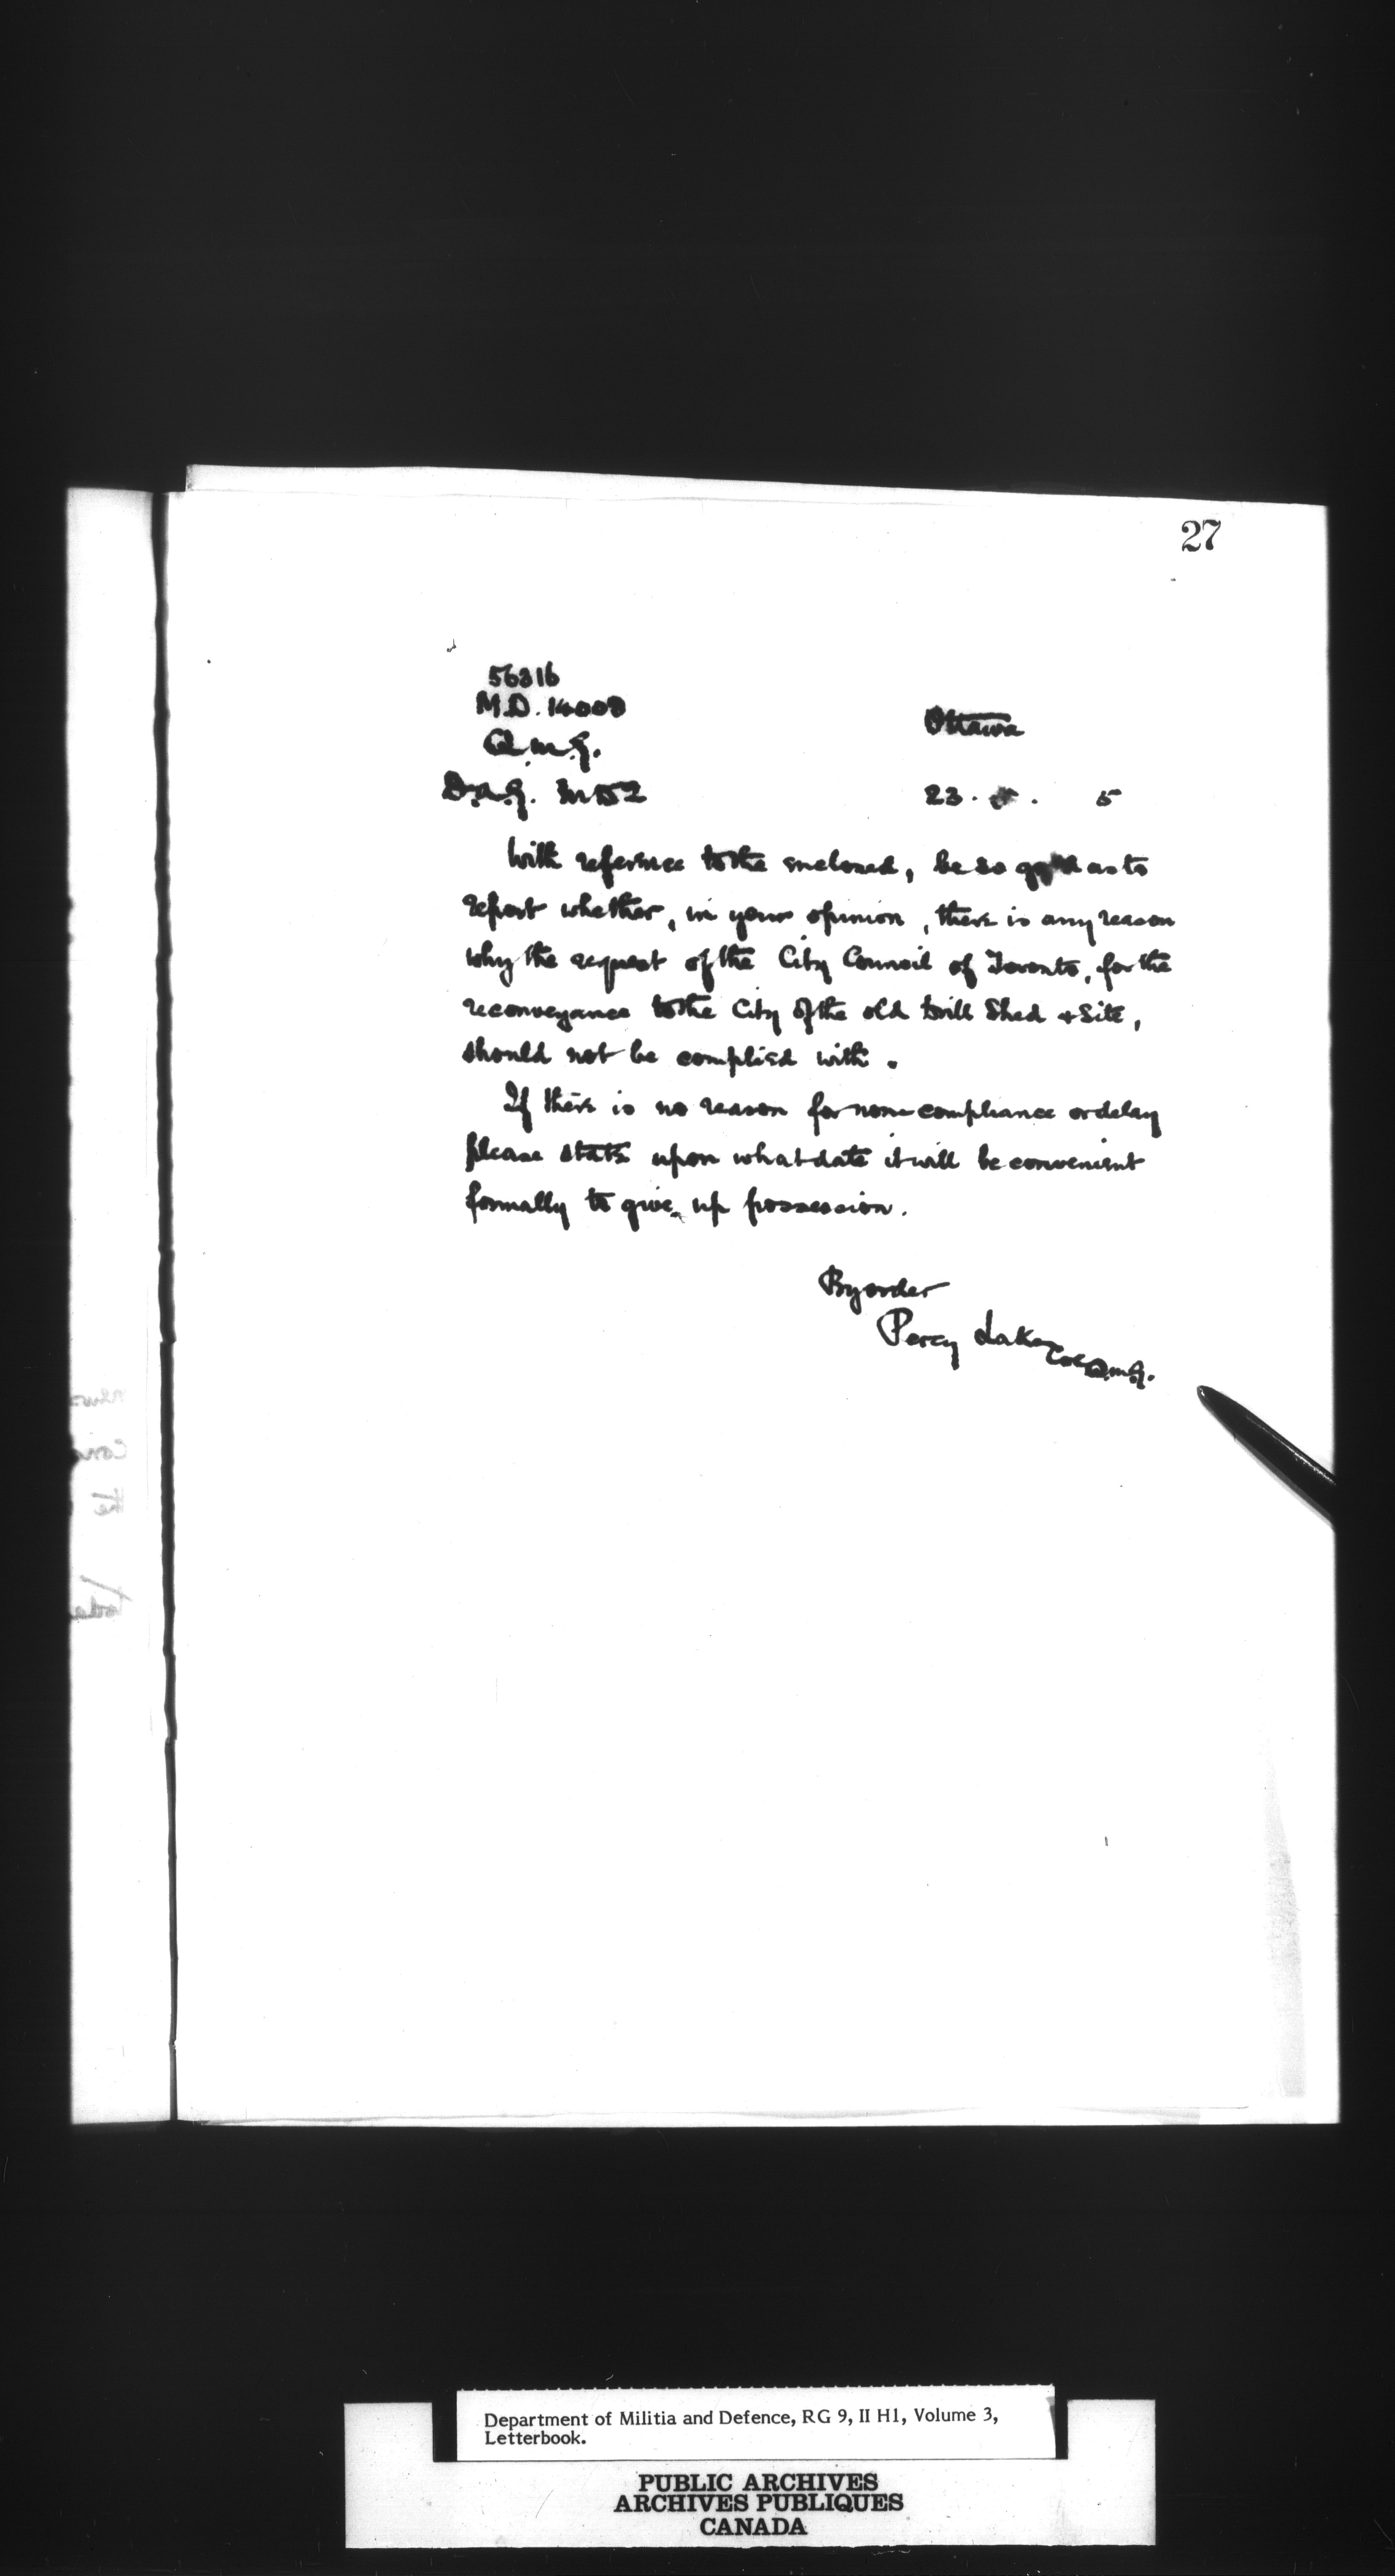 27
56316
M.D. 14008
Q.M.G.
D.A.G. M.D 2
Ottawa
23. 5
With reference to the enclosed, be so good as to
report whether, in your opinion, there is any reason
why the request of the City Council of Toronto, for the
reconveyance to the City of the old Drill Shed & Site,
should not be complied with.
If there is no reason for non-compliance or delay
please state upon what date it will be convenient
formally to give up possession.
By order
Percy Lake Col Q.M.G.
Department of Militia and Defence, RG 9, II H1, Volume 3,
Letterbook.
PUBLIC ARCHIVES
ARCHIVES PUBLIQUES
CANADA